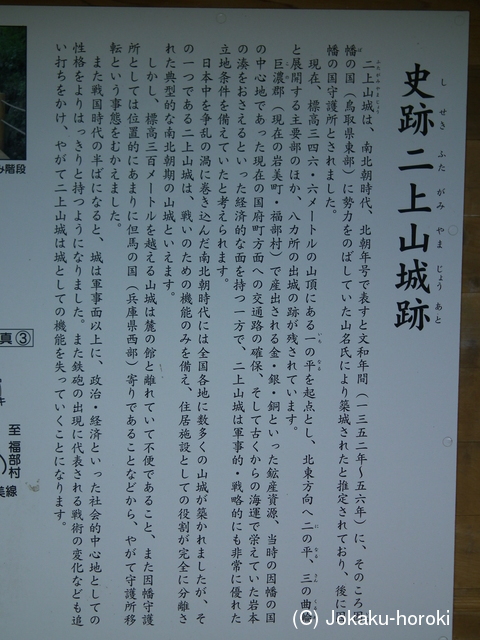 史跡二上山城跡
し せき ふた がみ やま じょう あと
二上山城は、南北朝時代、北朝年号で表すと文和年間（一三五二年～五六年）に、そのころ
幡の国（鳥取県東部）に勢力をのばしていた山名氏により築城されたと推定されており、後に
幡の国守護所とされました。
現在、標高三四六・六メートルの山頂にある一の平を起点とし、北東方向へ二の平、三の曲
と展開する主要部のほか、八カ所の出城の跡が残されています。
巨濃郡（現在の岩美町・福部村）で産出される金・銀・銅といった鉱産資源、当時の因幡の国
の中心地であった現在の国府町方面への交通路の確保、そして古くからの海運で栄えていた岩本
の湊をおさえるといった経済的な面を持つ一方で、二上山城は軍事的・戦略的にも非常に優れた
立地条件を備えていたと考えられます。
日本中を争乱の渦に巻き込んだ南北朝時代には全国各地に数多くの山城が築かれましたが、そ
の一つである二上山城は、戦いのための機能のみを備え、住居施設としての役割が完全に分離さ
れた典型的な南北朝期の山城といえます。
しかし、標高三百メートルを越える山城は麓の館と離れていて不便であること、また因幡守護
所としては位置的にあまりに但馬の国（兵庫県西部）寄りであることなどから、やがて守護所移
転という事態をむかえました。
また戦国時代の半ばになると、城は軍事面以上に、政治・経済といった社会的中心地としての
性格をよりはっきりと持つようになりました。また鉄砲の出現に代表される戦術の変化なども追
い打ちをかけ、やがて二上山城は城としての機能を失っていくことになります。
み階段
真③
至 福部村
美線
(C) Jokaku-horoki